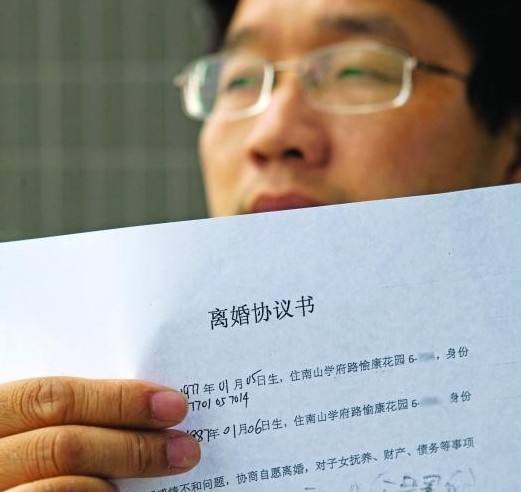 离婚协议书
1977年01月05日生，住南山学府路愉康花园6- ，身份
7701057014
1987年01月06日生，住南山学府路愉康花园6- 身份
不和问题，协商自愿离婚，对子女抚养、财产、债务等事项